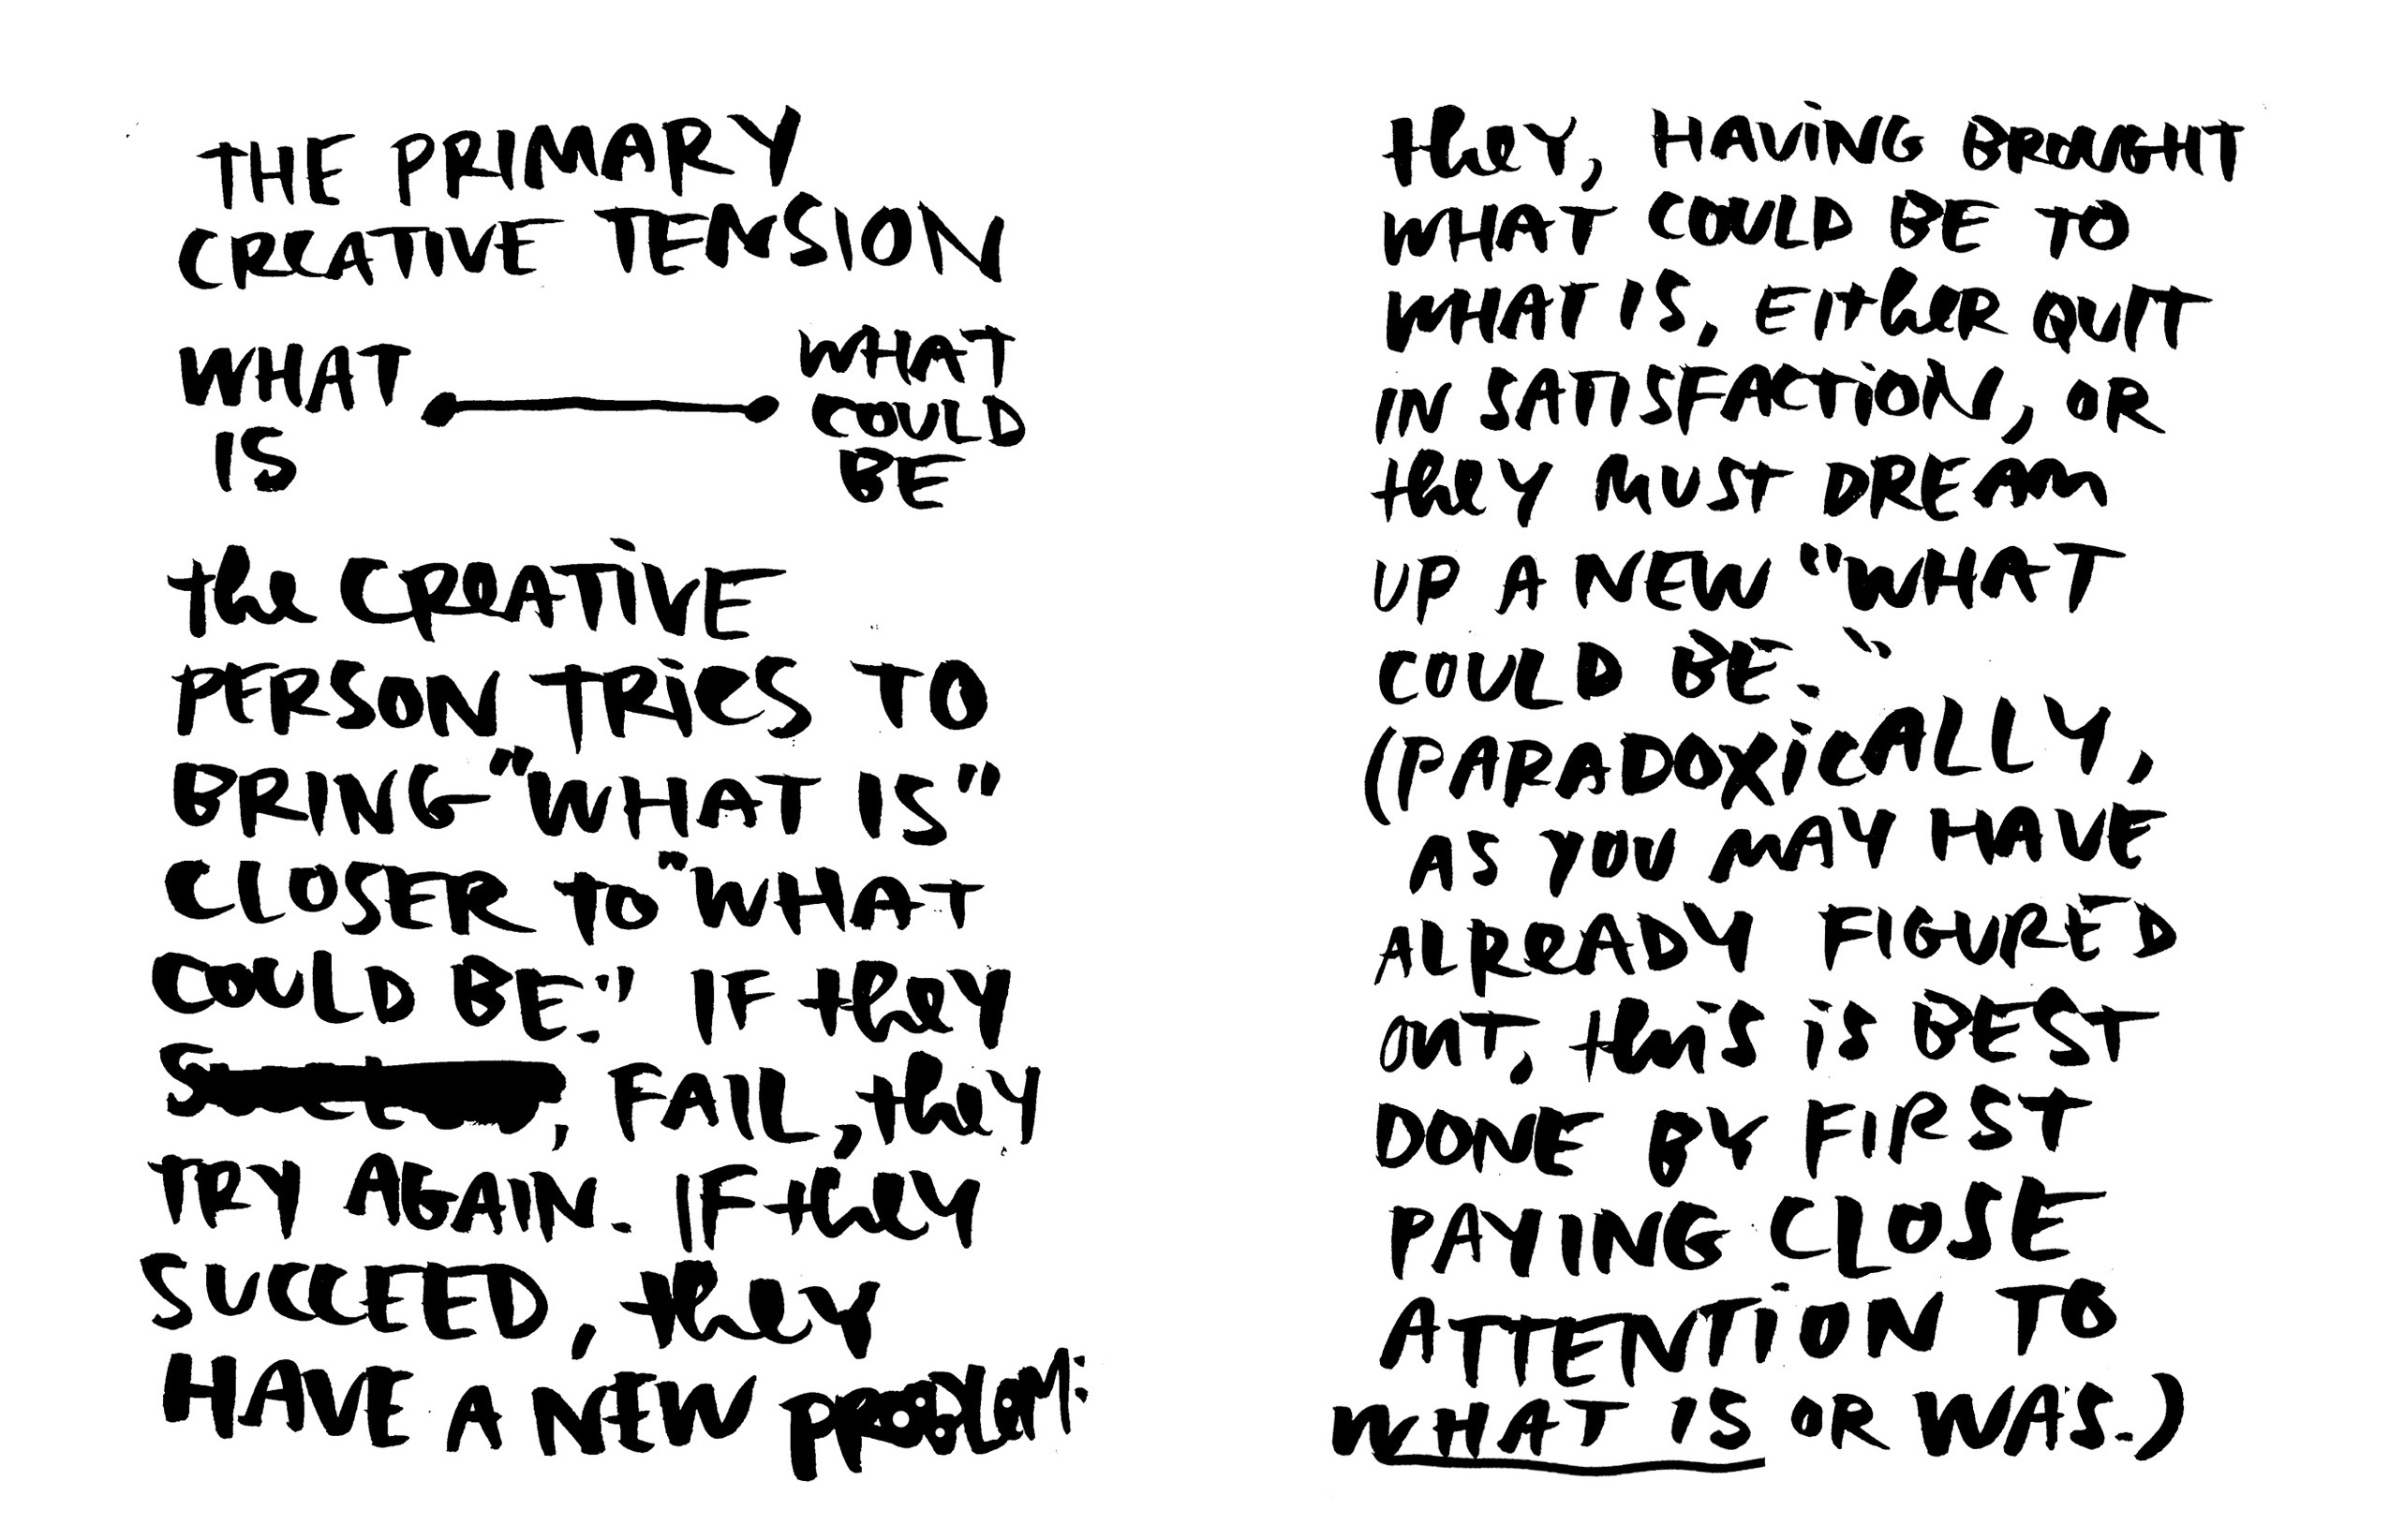 THE PRIMARY
CREATIVE TENSION
WHAT
IS
WHAT
COULD
BE
the CREATIVE
PERSON TRIES TO
BRING "WHAT IS"
CLOSER to "WHAT
COULD BE." IF they
, FAIL, they
TRY AGAIN. IF they
SUCCEED, they
HAVE A NEW PROBLEM:
they, HAVING BROUGHT
WHAT COULD BE TO
WHAT IS, EITHER QUIT
IN SATISFACTION, OR
they MUST DREAM
UP A NEW "WHAT
COULD BE."
(PARADOXICALLY,
AS YOU MAY HAVE
ALREADY FIGURED
OUT, this is BEST
DONE BY FIRST
PAYING CLOSE
ATTENTION TO
WHAT IS OR WAS.)